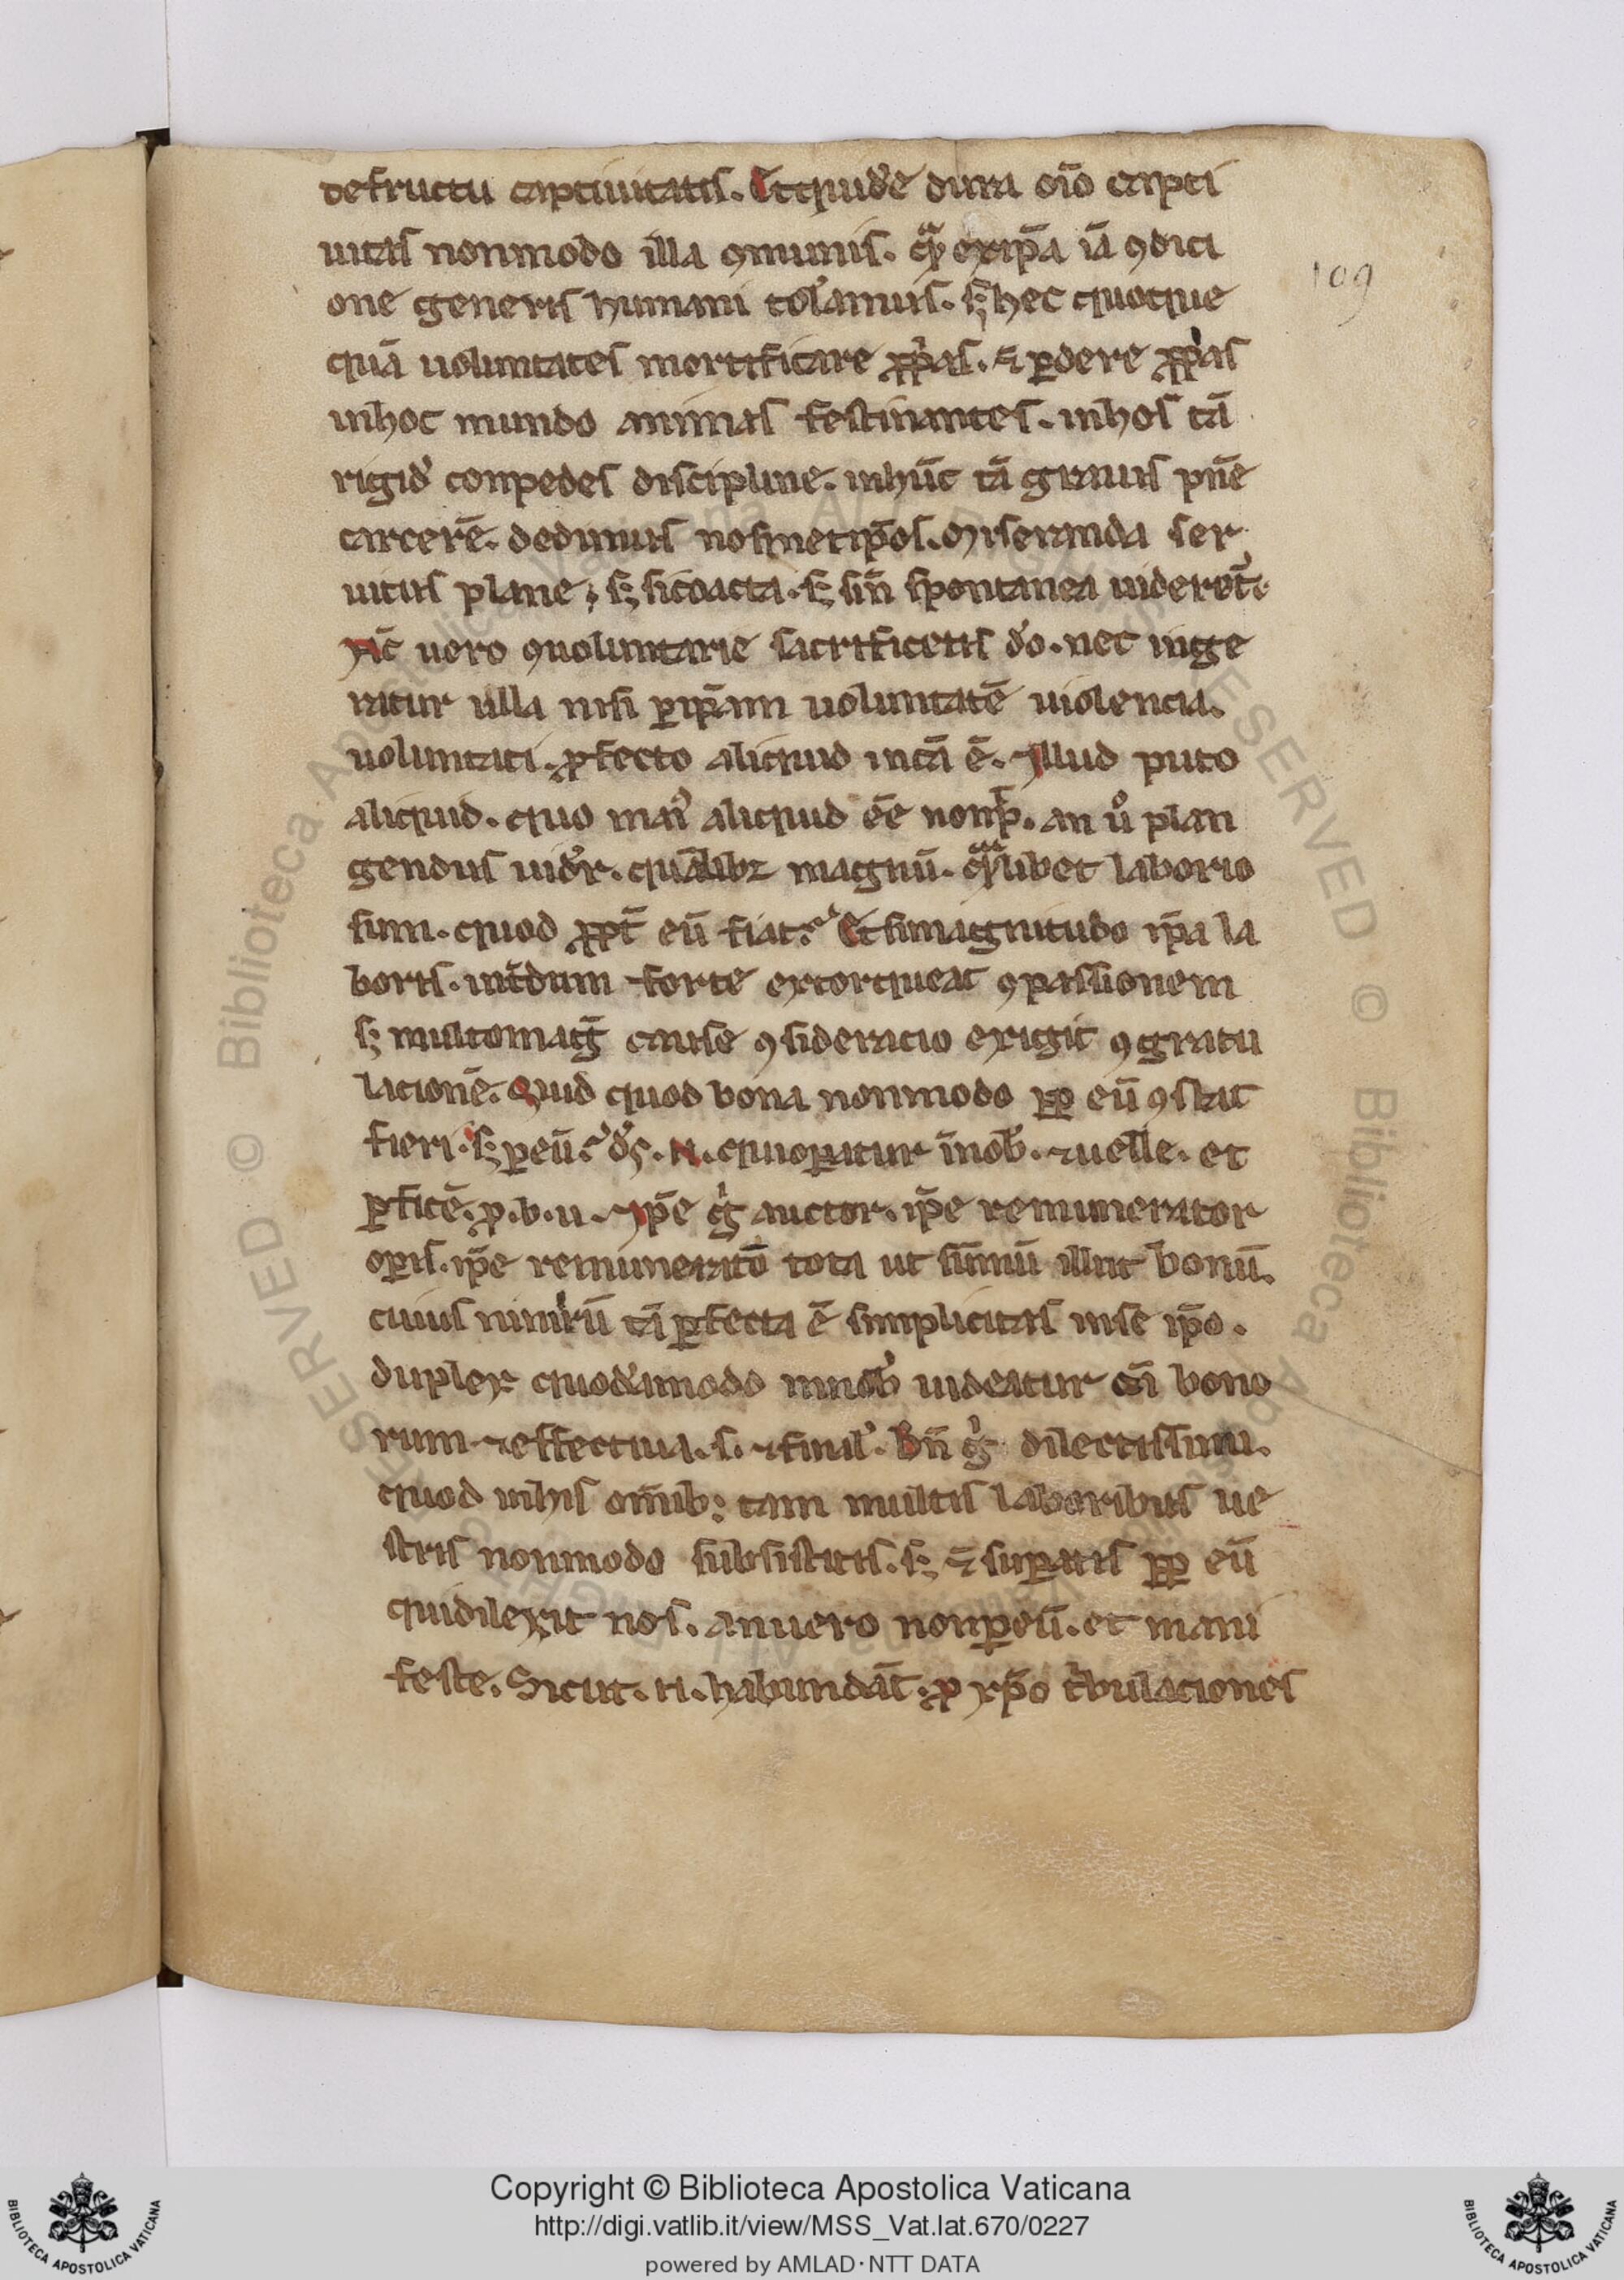 defructu captiuitatis. Et quidē dura oīo capti
uitas nonmodo illa ꝯmunis. quā ex ip̄a iā ꝯdici
one generis humani tol'amus. sꝫ hec quoque
quā uoluntates mortificare ꝓprias. ⁊ ꝑdere ꝓprias
inhoc mundo animas festinantes. inhos tā
rigid' conpedes discipline. inhūc tā grauis pn̄e
carcerē. dedimus nosmetip̄os. Miseranda ser
uitus plane, sꝫ si coacta. sꝫ si n̄ spontanea uideret'.
Nūc uero ꝯuoluntarie sacrificetis d'o. nec inge
ratur ulla nisi ꝑ ip̄am uoluntatē uiolencia.
uoluntati. ꝓfecto aliquid in cā ē. Illud puto
aliquid. quo mai' aliquid eē non p̄t. an uº plan
gendus uid'r. quālibꝫ magnū. quālibet laborio
sum. quod ꝓpt̄ eū fiat? Et si magnitudo ip̄a la
boris. int̄dum forte extorqueat ꝯpassionem
sꝫ multomag̅ cause ꝯsideracio exigit ꝯgratu
lacionē. Quid quod bona nonmodo ꝓꝑ eū ꝯstat
fieri. sꝫ ꝑ eū? d's. N. qui oꝑatur ī nob'. ⁊ uelle. et
ꝑficē. ꝓ. b. u. Ip̄e gͥ auctor. ip̄e remunerator
oꝑis. ip̄e remuneratō tota ut sūmū illut bonū.
cuius nimirū tā ꝑfecta ē simplicitas inse ip̄o.
duplex quod'amodo innob' uideatur cā bono
rum ⁊ effectiua. s. ⁊ final'. Bn̄ gͥ dilectissimi.
quod inhis om̄ibꝫ tam multis laboribus ue
stris nonmodo subsistitis. sꝫ ⁊ suꝑatis ꝓꝑ eū
qui dilexit nos. an uero non ꝑ eū. et mani
feste. Sicut. N. habundāt. ꝓ xp̄o tͥbulaciones
109
Copyright © Biblioteca Apostolica Vaticana
http://digi.vatlib.it/view/MSS_Vat.lat.670/0227
powered by AMLAD · NTT DATA